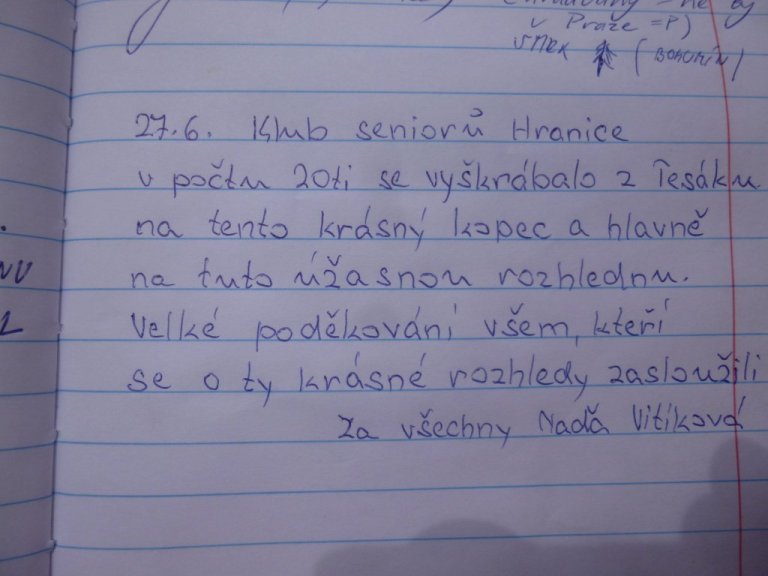 v Praze =P)
SMRK (BOHUMÍN)
27.6. Klub seniorů Hranice
v počtu 20ti se vyškrábalo z Tesáku
na tento krásný kopec a hlavně
na tuto úžasnou rozhlednu.
Velké poděkování všem, kteří
se o ty krásné rozhledy zasloužili
Za všechny Naďa Vitíková